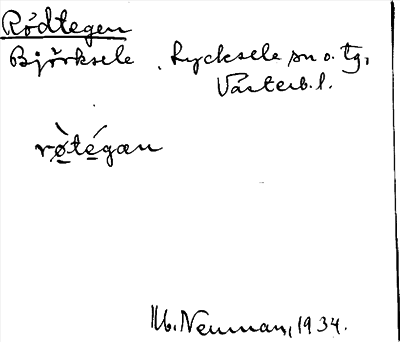 Rödtegen
Björksele . Lycksele sn o. tg,
Västerb. l.
rø̀tégæn
M. Neuman, 1934.